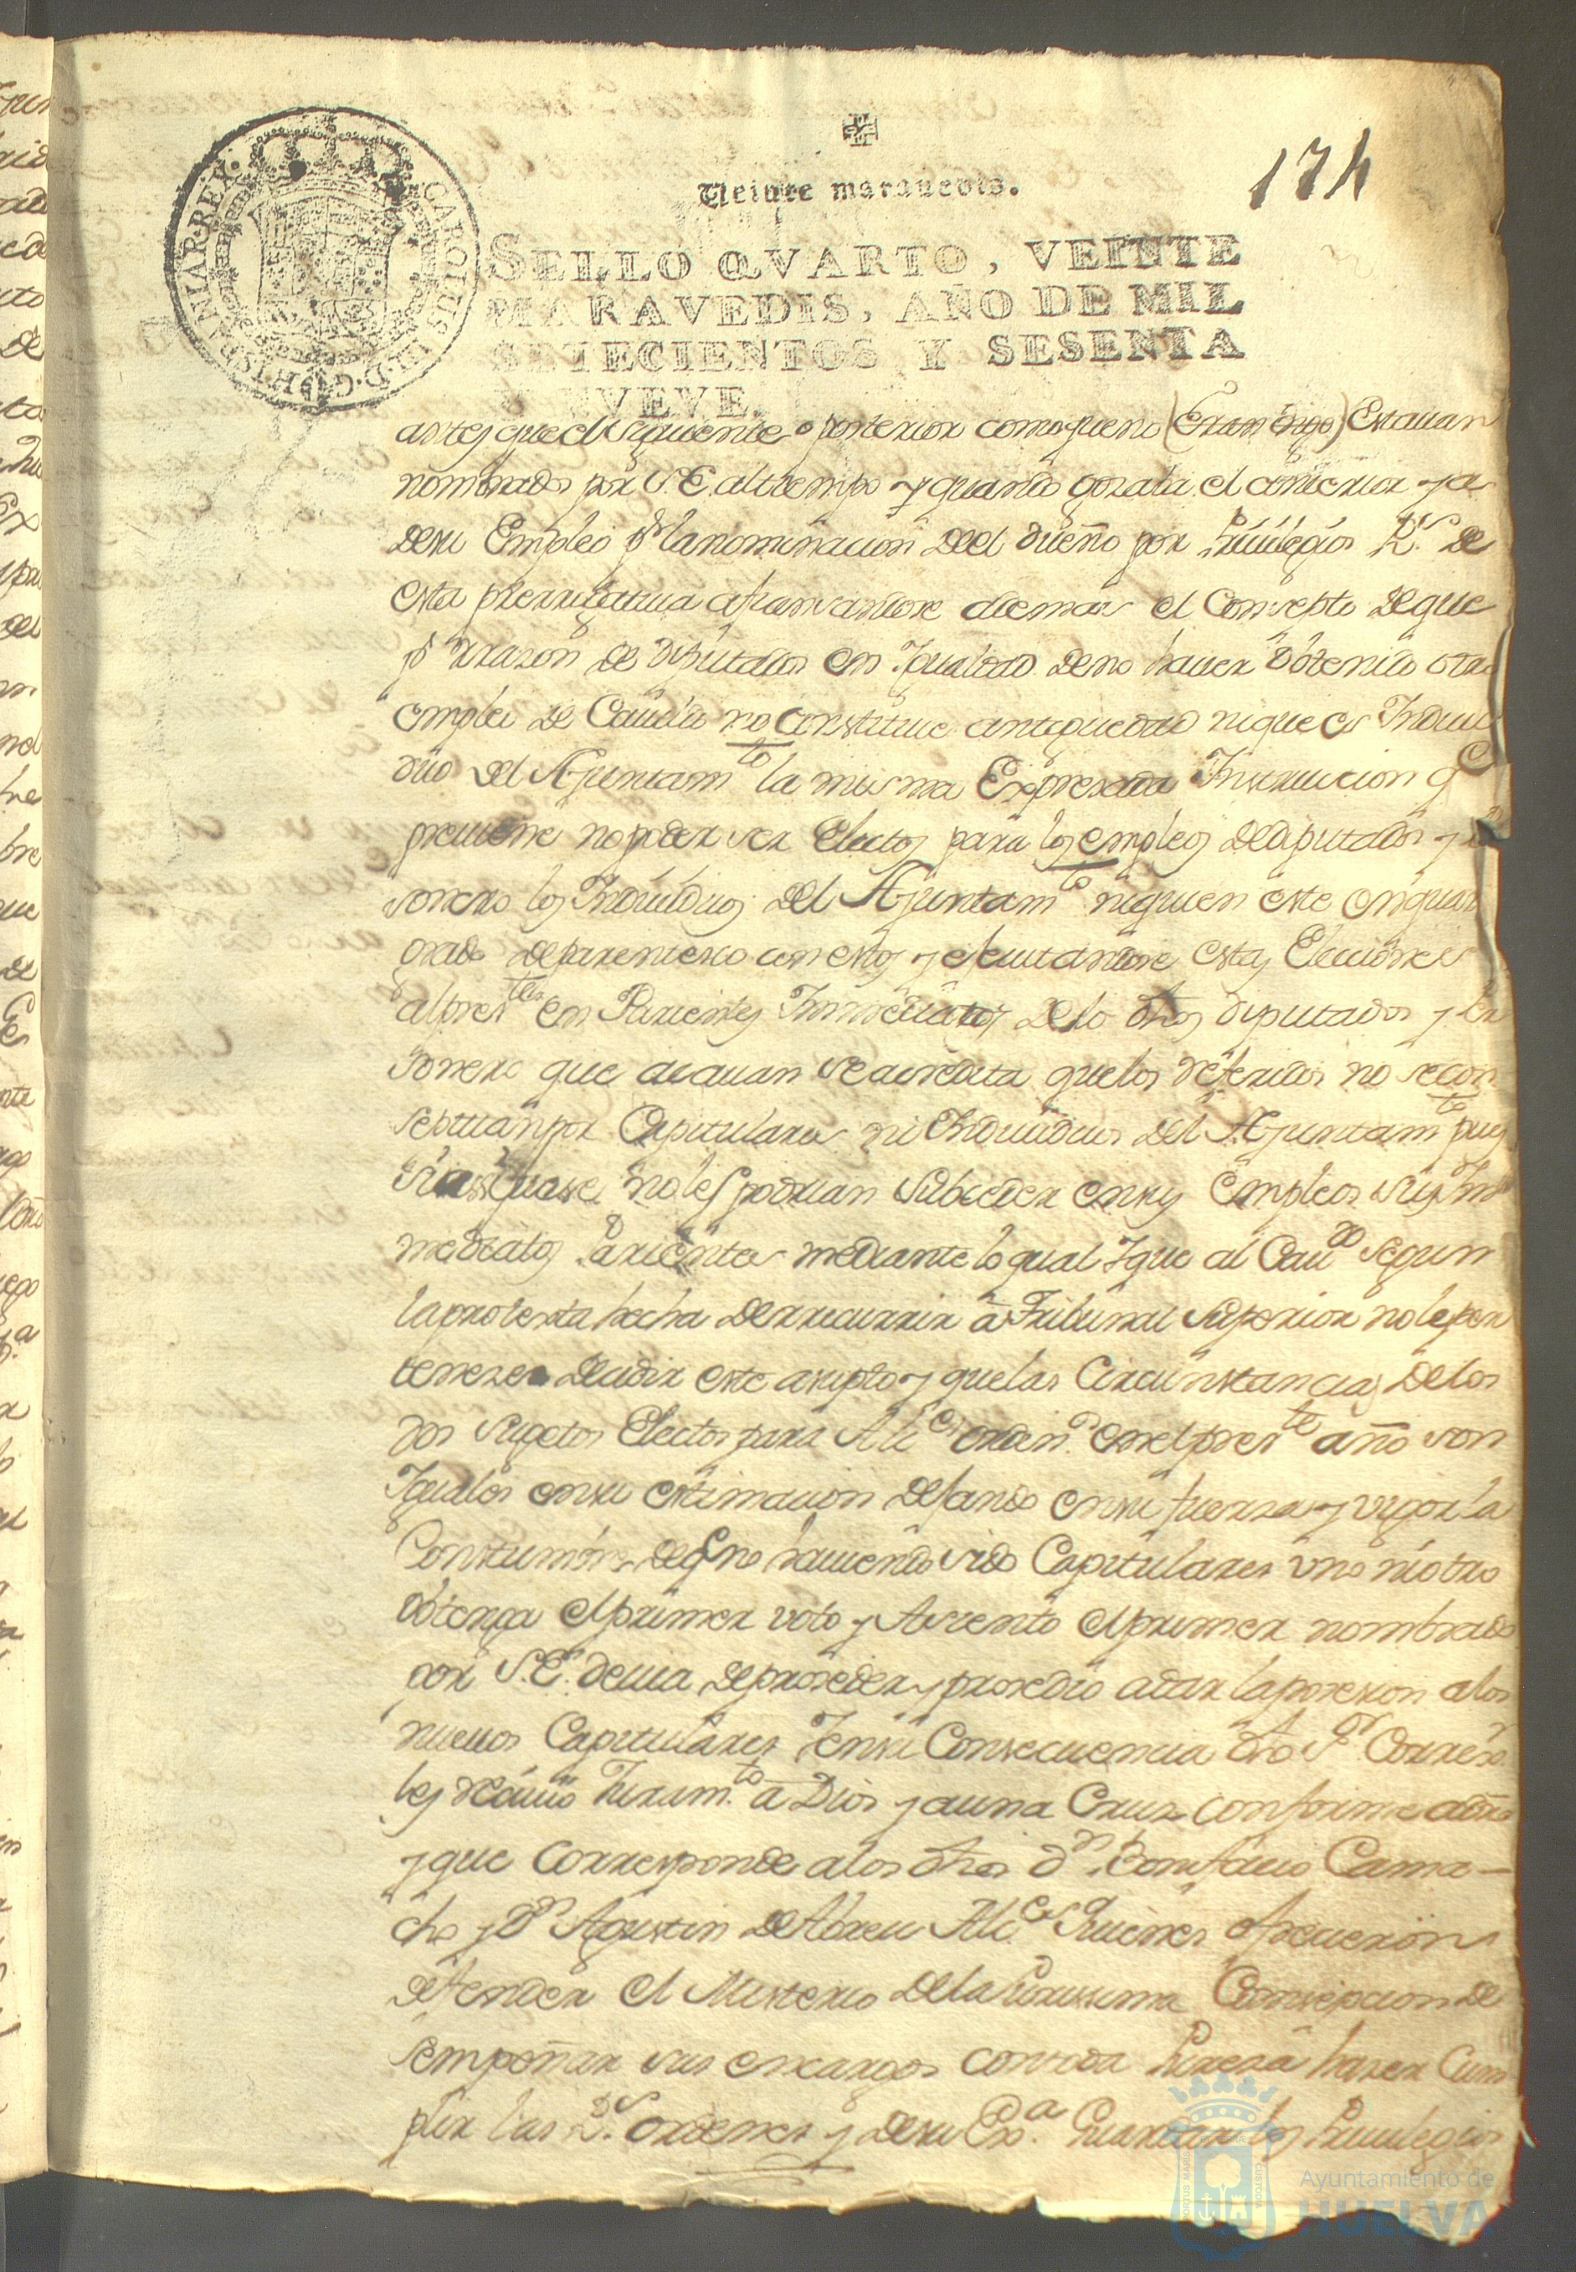 174
Veinte maravedis.
SELLO QVARTO, VEINTE
MARAVEDIS, AÑO DE MIL
SETECIENTOS Y SESENTA
Y NVEVE.
CAROLUS III D.G. HISPANIAR. REX.
antes que el siguiente o posterior como que no (Eran digo) Estauan
nombrados por S.E. al tiempo y quando gozaba el conecxor ya
de su Empleo pr la nominacion de el dueño por Priuilegios Rs. de
esta prerrogatiua afianzandose ademas el Consepto de que
pr razon de diputados en Igualdad de no hauer obtenido otro
empleo de Cauildo no constitue antiguedad ni que es Indiui
duo del Ajuntamto la misma Expresada Instruccion qe
preuiene no poder ser Electos para los empleos de diputados y Per
sonero los Indiuiduos del Ajuntamto ni quien este en quarto
grado de parentesco con estos y ejecutandose estas Elecciones
al preste en Parientes Inmediatos de lo dhos diputados y Per
sonero que acauan se acredita que los referidos no se con
septuan por Capitulares ni Indiuiduos del Ajuntamto pues
no les podrian subceder en sus Empleos sus Yn
mediatos Parientes mediante lo qual Y que al Caudo segun
la protexta hecha de recurrir â Tribunal Superior no le per
tenese desidir este asumpto y que las Circunstancias de los
dos sugetos Electos para Alces ordens. en el preste año son
Yguales en su estimacion dejando en su fuerza y vigor la
Constumbre de qe no hauiendo sido Capitulares uno ni otro
obtenga el primer voto y Asiento el primer nombrado
por S.E. deuia de proseder y prosedio a dar la posesion a los
nueuos Capitulares Y en su Consecuencia dho Sr. Correxor
les reciuio Juramto. a Dios y a una Cruz conforme a dro
y que corresponde a los dhos dn. Bonifacio Cama-
cho y Dn Agustin de Abreu Alces Quienes ofrecieron
defender el Misterio de la Purissima Consepcion de
sempeñar sus encargos con toda Pureza hazer Cum
plir las Rs. ordenes y de su Exa. Guardar los Priuilegios
Ayuntamiento de
HUELVA